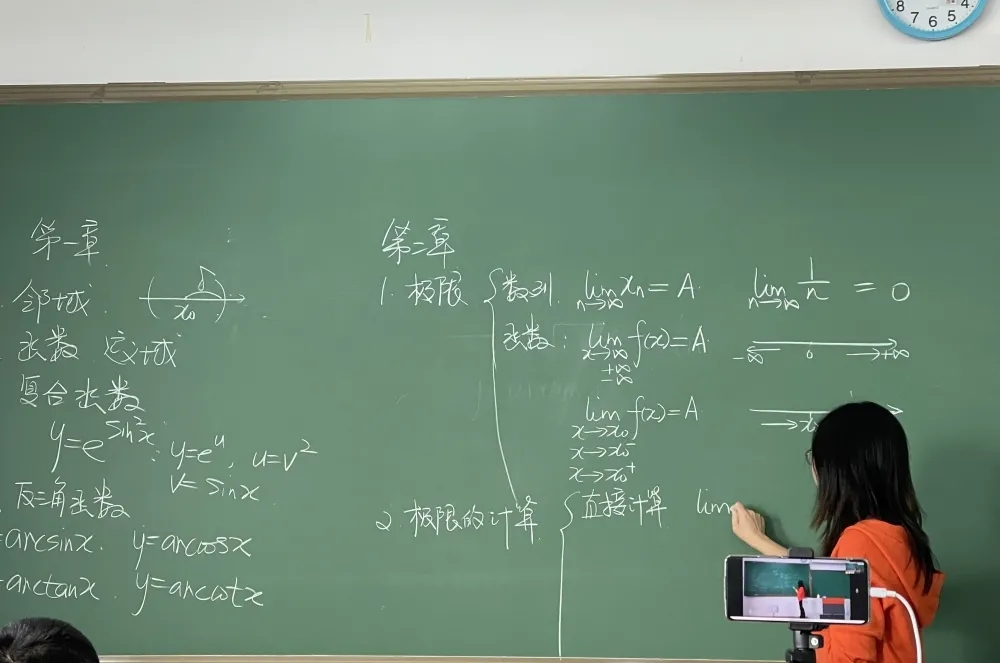 第一章
邻域 ( δ x₀ )
函数 定义域
复合函数
y=e^{sin²x} : y=e^u, u=v²
v=sinx
反三角函数
=arcsinx. y=arccosx
=arctanx. y=arccotx
第二章
1. 极限 { 数列 lim_{n→∞} xₙ = A lim_{n→∞} 1/n = 0
函数: lim_{x→∞} f(x) = A -∞ 0 →+∞
+∞
-∞
lim_{x→x₀} f(x) = A
x→x₀⁻
x→x₀⁺
2. 极限的计算 { 直接计算 lim
8 7 6 5 4